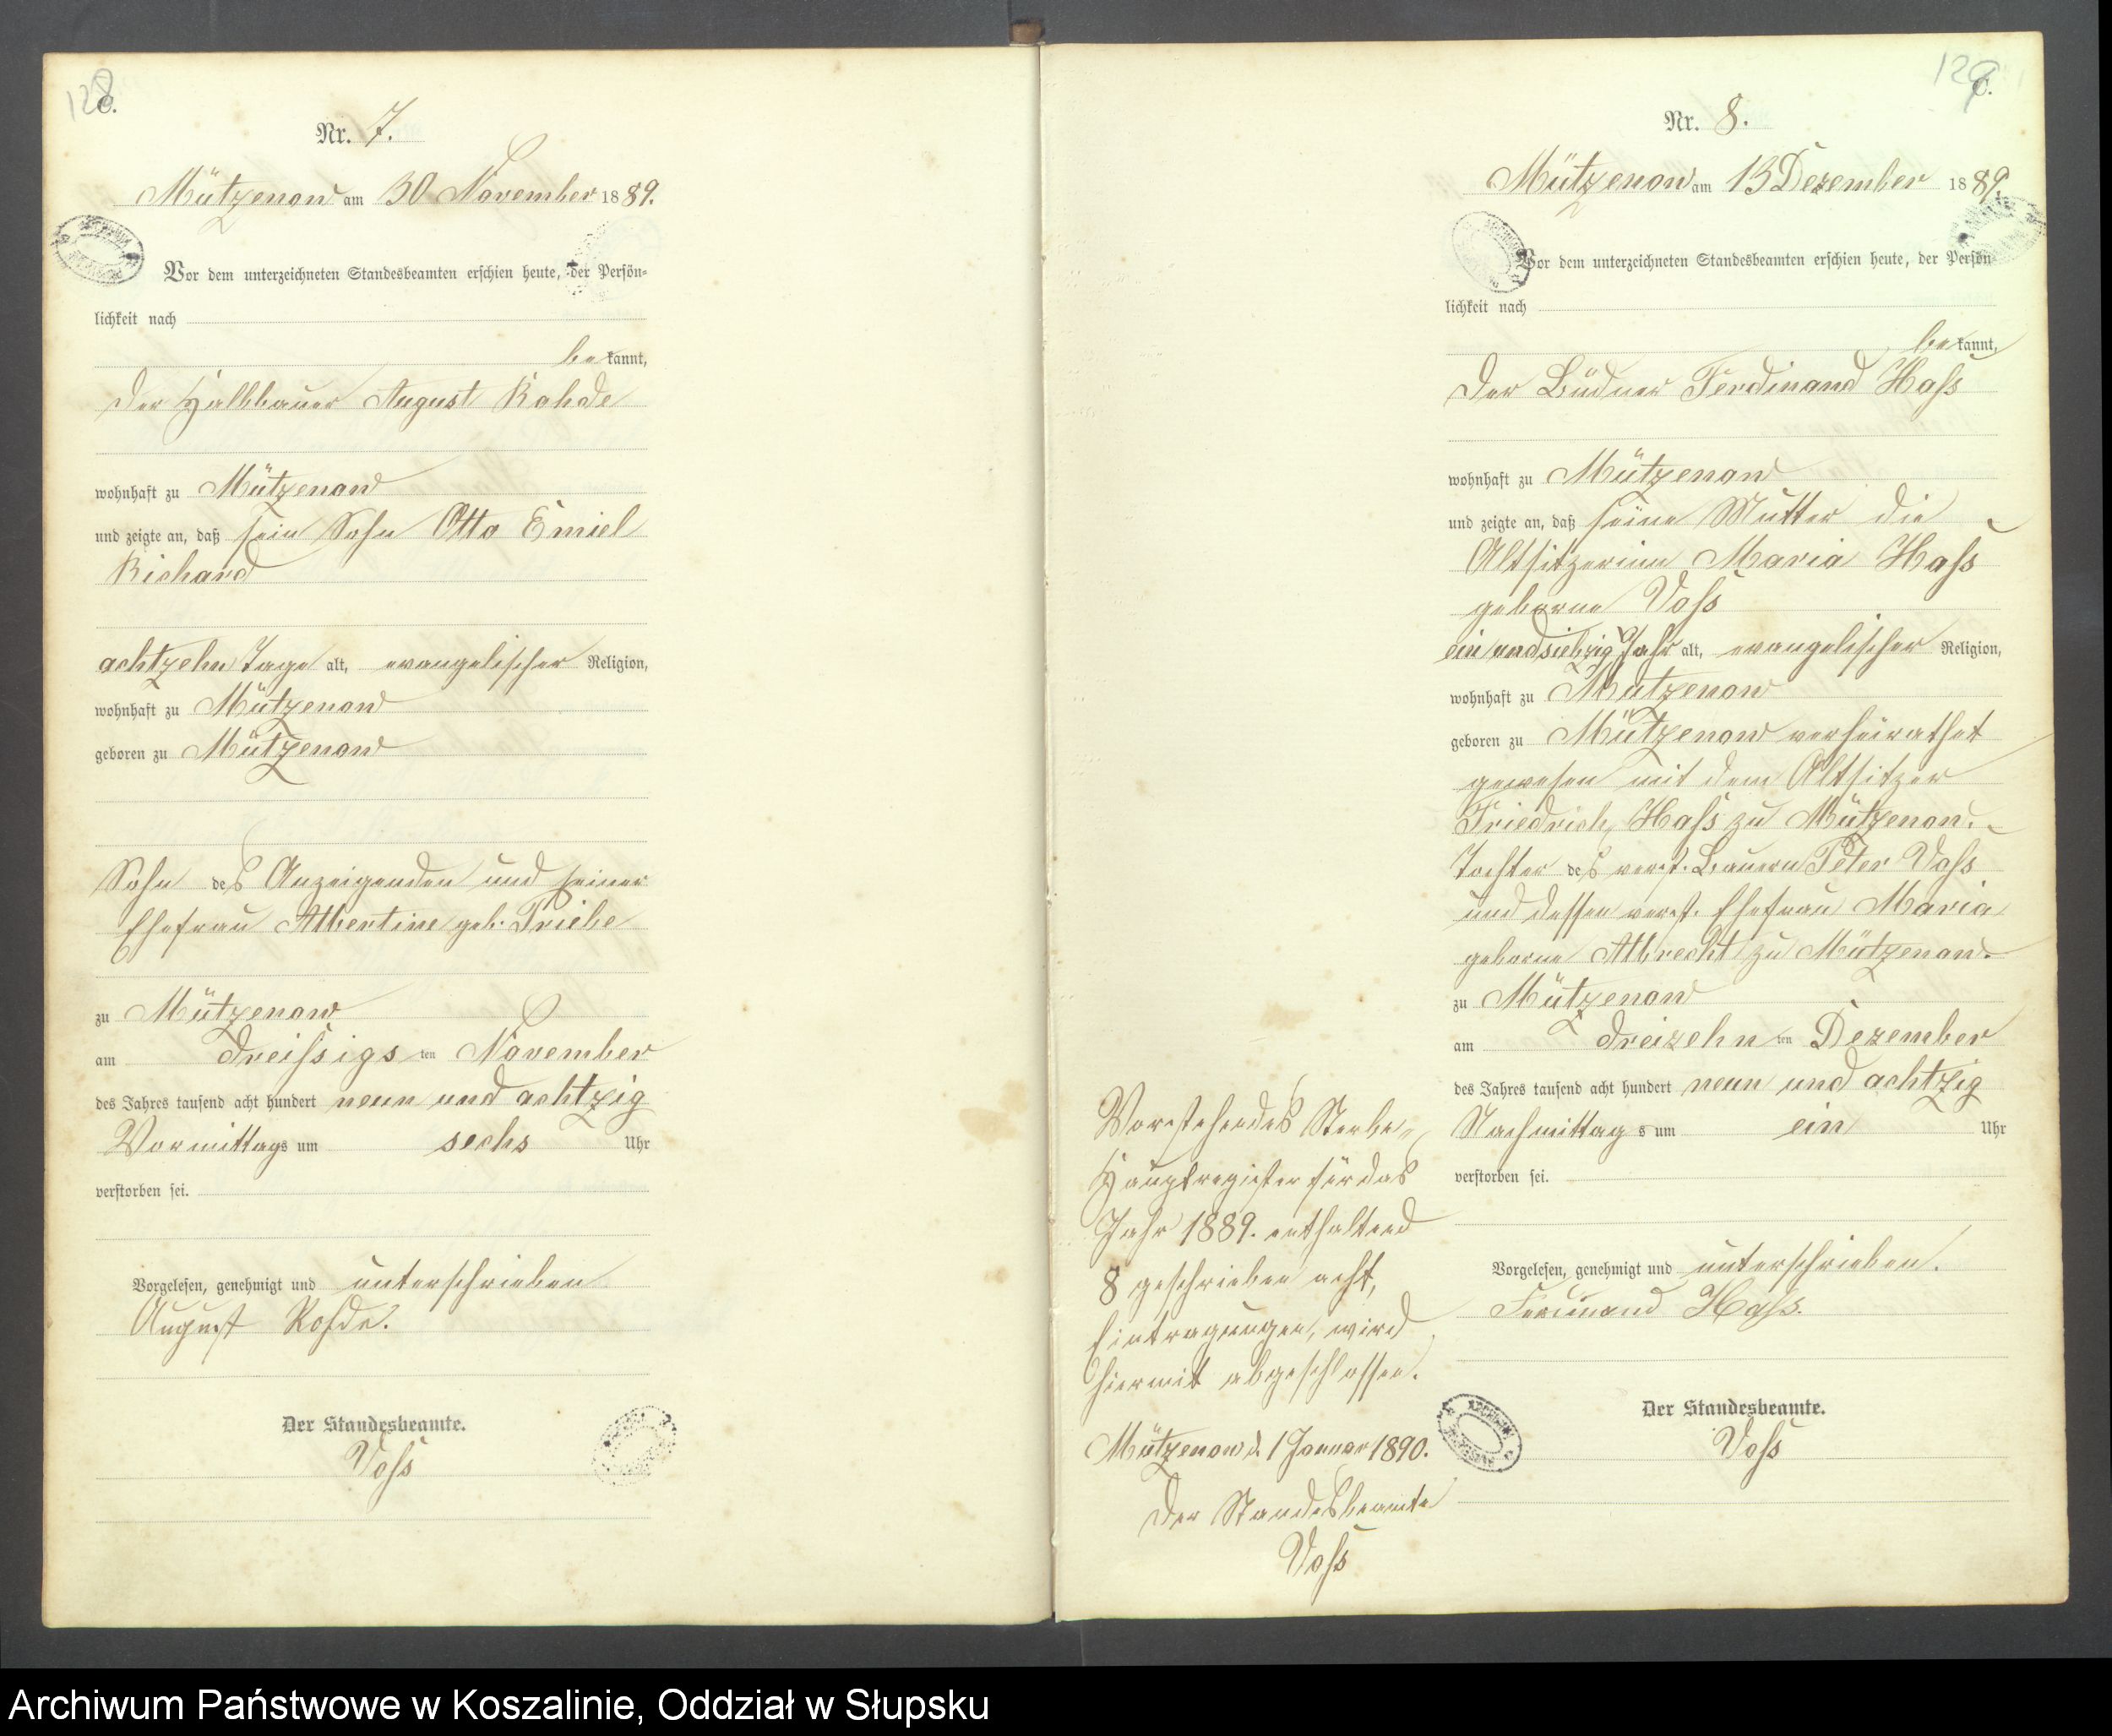 128
C.
Nr. 7.
Mützenow am 30 November 1889.
Vor dem unterzeichneten Standesbeamten erschien heute, der Persön-
lichkeit nach
bekannt,
der Halbbauer August Rohde
wohnhaft zu Mützenow
und zeigte an, daß sein Sohn Otto Emiel
Richard
achtzehn Tage alt, evangelischer Religion,
wohnhaft zu Mützenow
geboren zu Mützenow
Sohn des Anzeigenden und seiner
Ehefrau Albertine geb. Priebe
zu Mützenow
am dreißigsten November
des Jahres tausend acht hundert neun und achtzig
Vormittags um sechs Uhr
verstorben sei.
Vorgelesen, genehmigt und unterschrieben
August Rohde.
Der Standesbeamte.
Voß
129
C.
Nr. 8.
Mützenow am 13 Dezember 1889.
Vor dem unterzeichneten Standesbeamten erschien heute, der Persön-
lichkeit nach
bekannt,
der Büdner Ferdinand Haß
wohnhaft zu Mützenow
und zeigte an, daß seine Mutter die
Altsitzerinn Maria Haß
geborne Voß
ein und siebzig Jahr alt, evangelischer Religion,
wohnhaft zu Mützenow
geboren zu Mützenow verheirathet
gewesen mit dem Altsitzer
Friedrich Haß zu Mützenow.
Tochter des verst. Bauern Peter Voß
und dessen verst. Ehefrau Maria
geborne Albrecht zu Mützenow.
zu Mützenow
am dreizehnten Dezember
des Jahres tausend acht hundert neun und achtzig
Nachmittags um ein Uhr
verstorben sei.
Vorgelesen, genehmigt und unterschrieben.
Ferdinand Haß.
Der Standesbeamte.
Voß
Vorstehendes Sterbe-
Hauptregister für das
Jahr 1889. enthaltend
8 geschrieben acht,
Eintragungen, wird
hiermit abgeschlossen.
Mützenow d. 1 Januar 1890.
Der Standesbeamte
Voß
Archiwum Państwowe w Koszalinie, Oddział w Słupsku